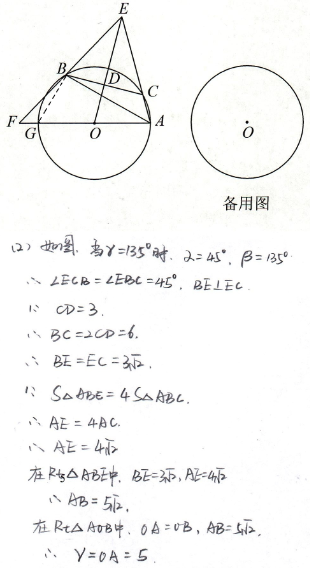 E
B
D
C
F
G
O
A
O
备用图
(2) 如图, 当γ=135°时, α=45°, β=135°
∴ ∠ECB=∠EBC=45°, BE⊥EC
∵ CD=3.
∴ BC=2CD=6.
∴ BE=EC=3√2.
∵ S△ABE=4S△ABC.
∴ AE=4AC.
∴ AE=4√2
在Rt△ABE中, BE=3√2, AE=4√2
∴ AB=5√2.
在Rt△AOB中, OA=OB, AB=5√2,
∴ r=OA=5.